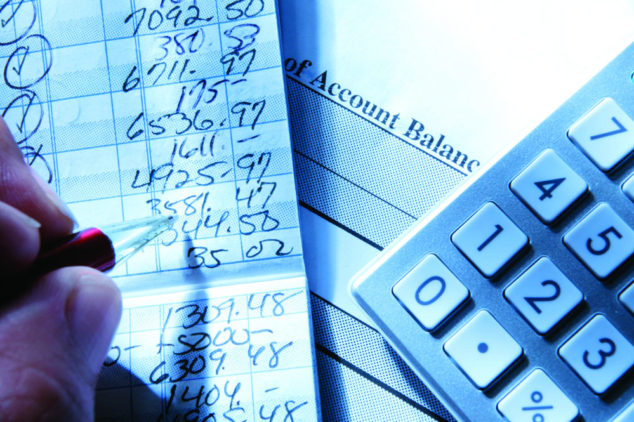 7092.50
380.53
6711.97
175-
6536.97
1611.-
4925.97
3581.47
344.50
35 02
1309.48
+5000-
6309.48
1404.-
905 48
of Account Balanc
7
4
5
1
2
3
0
.
%